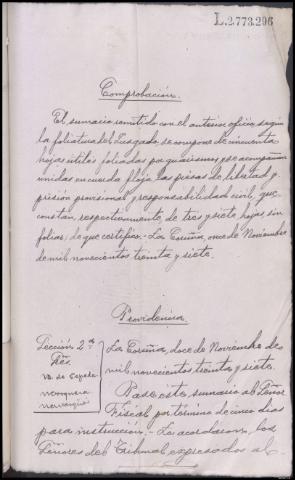 L.2.773.296
Comprobación.
El sumario remitido con el anterior oficio, según
la foliatura del Juzgado, se compone de cincuenta
hojas útiles foliadas por guarismos y se acompañan
unidas en cuerda floja las piezas de libertad y
prisión provisional y responsabilidad civil, que
constan, respectivamente, de tres y siete hojas sin
foliar; de que certifico.- La Coruña, once de Noviembre
de mil novecientos treinta y siete.
Providencia
Sección 2ª
Sres.
La Coruña, doce de Noviembre de
mil novecientos treinta y siete.
Pase este sumario al Señor
Fiscal por término de cinco días
para instrucción.- Lo acordaron los
Señores del Tribunal expresados al